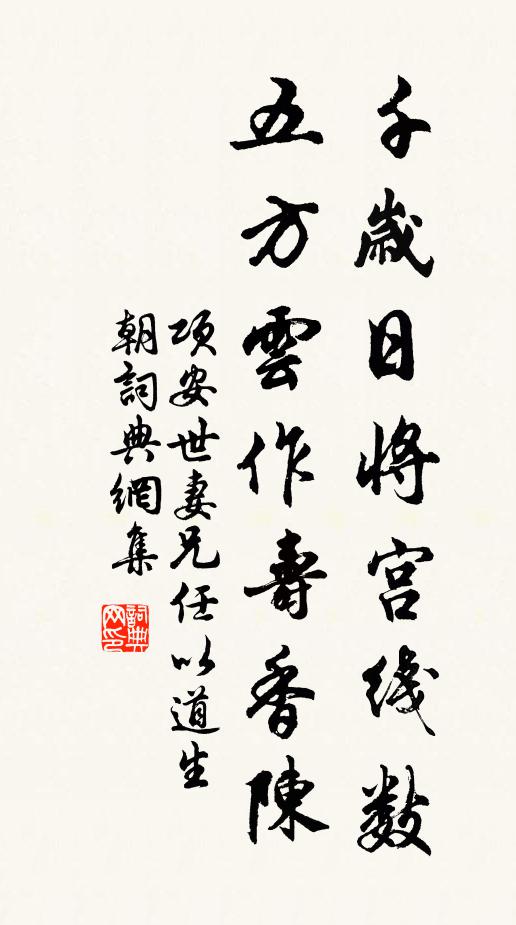 千歲日將宮綫數
五方雲作壽香陳
項安世妻兄任以道生
朝詞典網集
詞典
网印